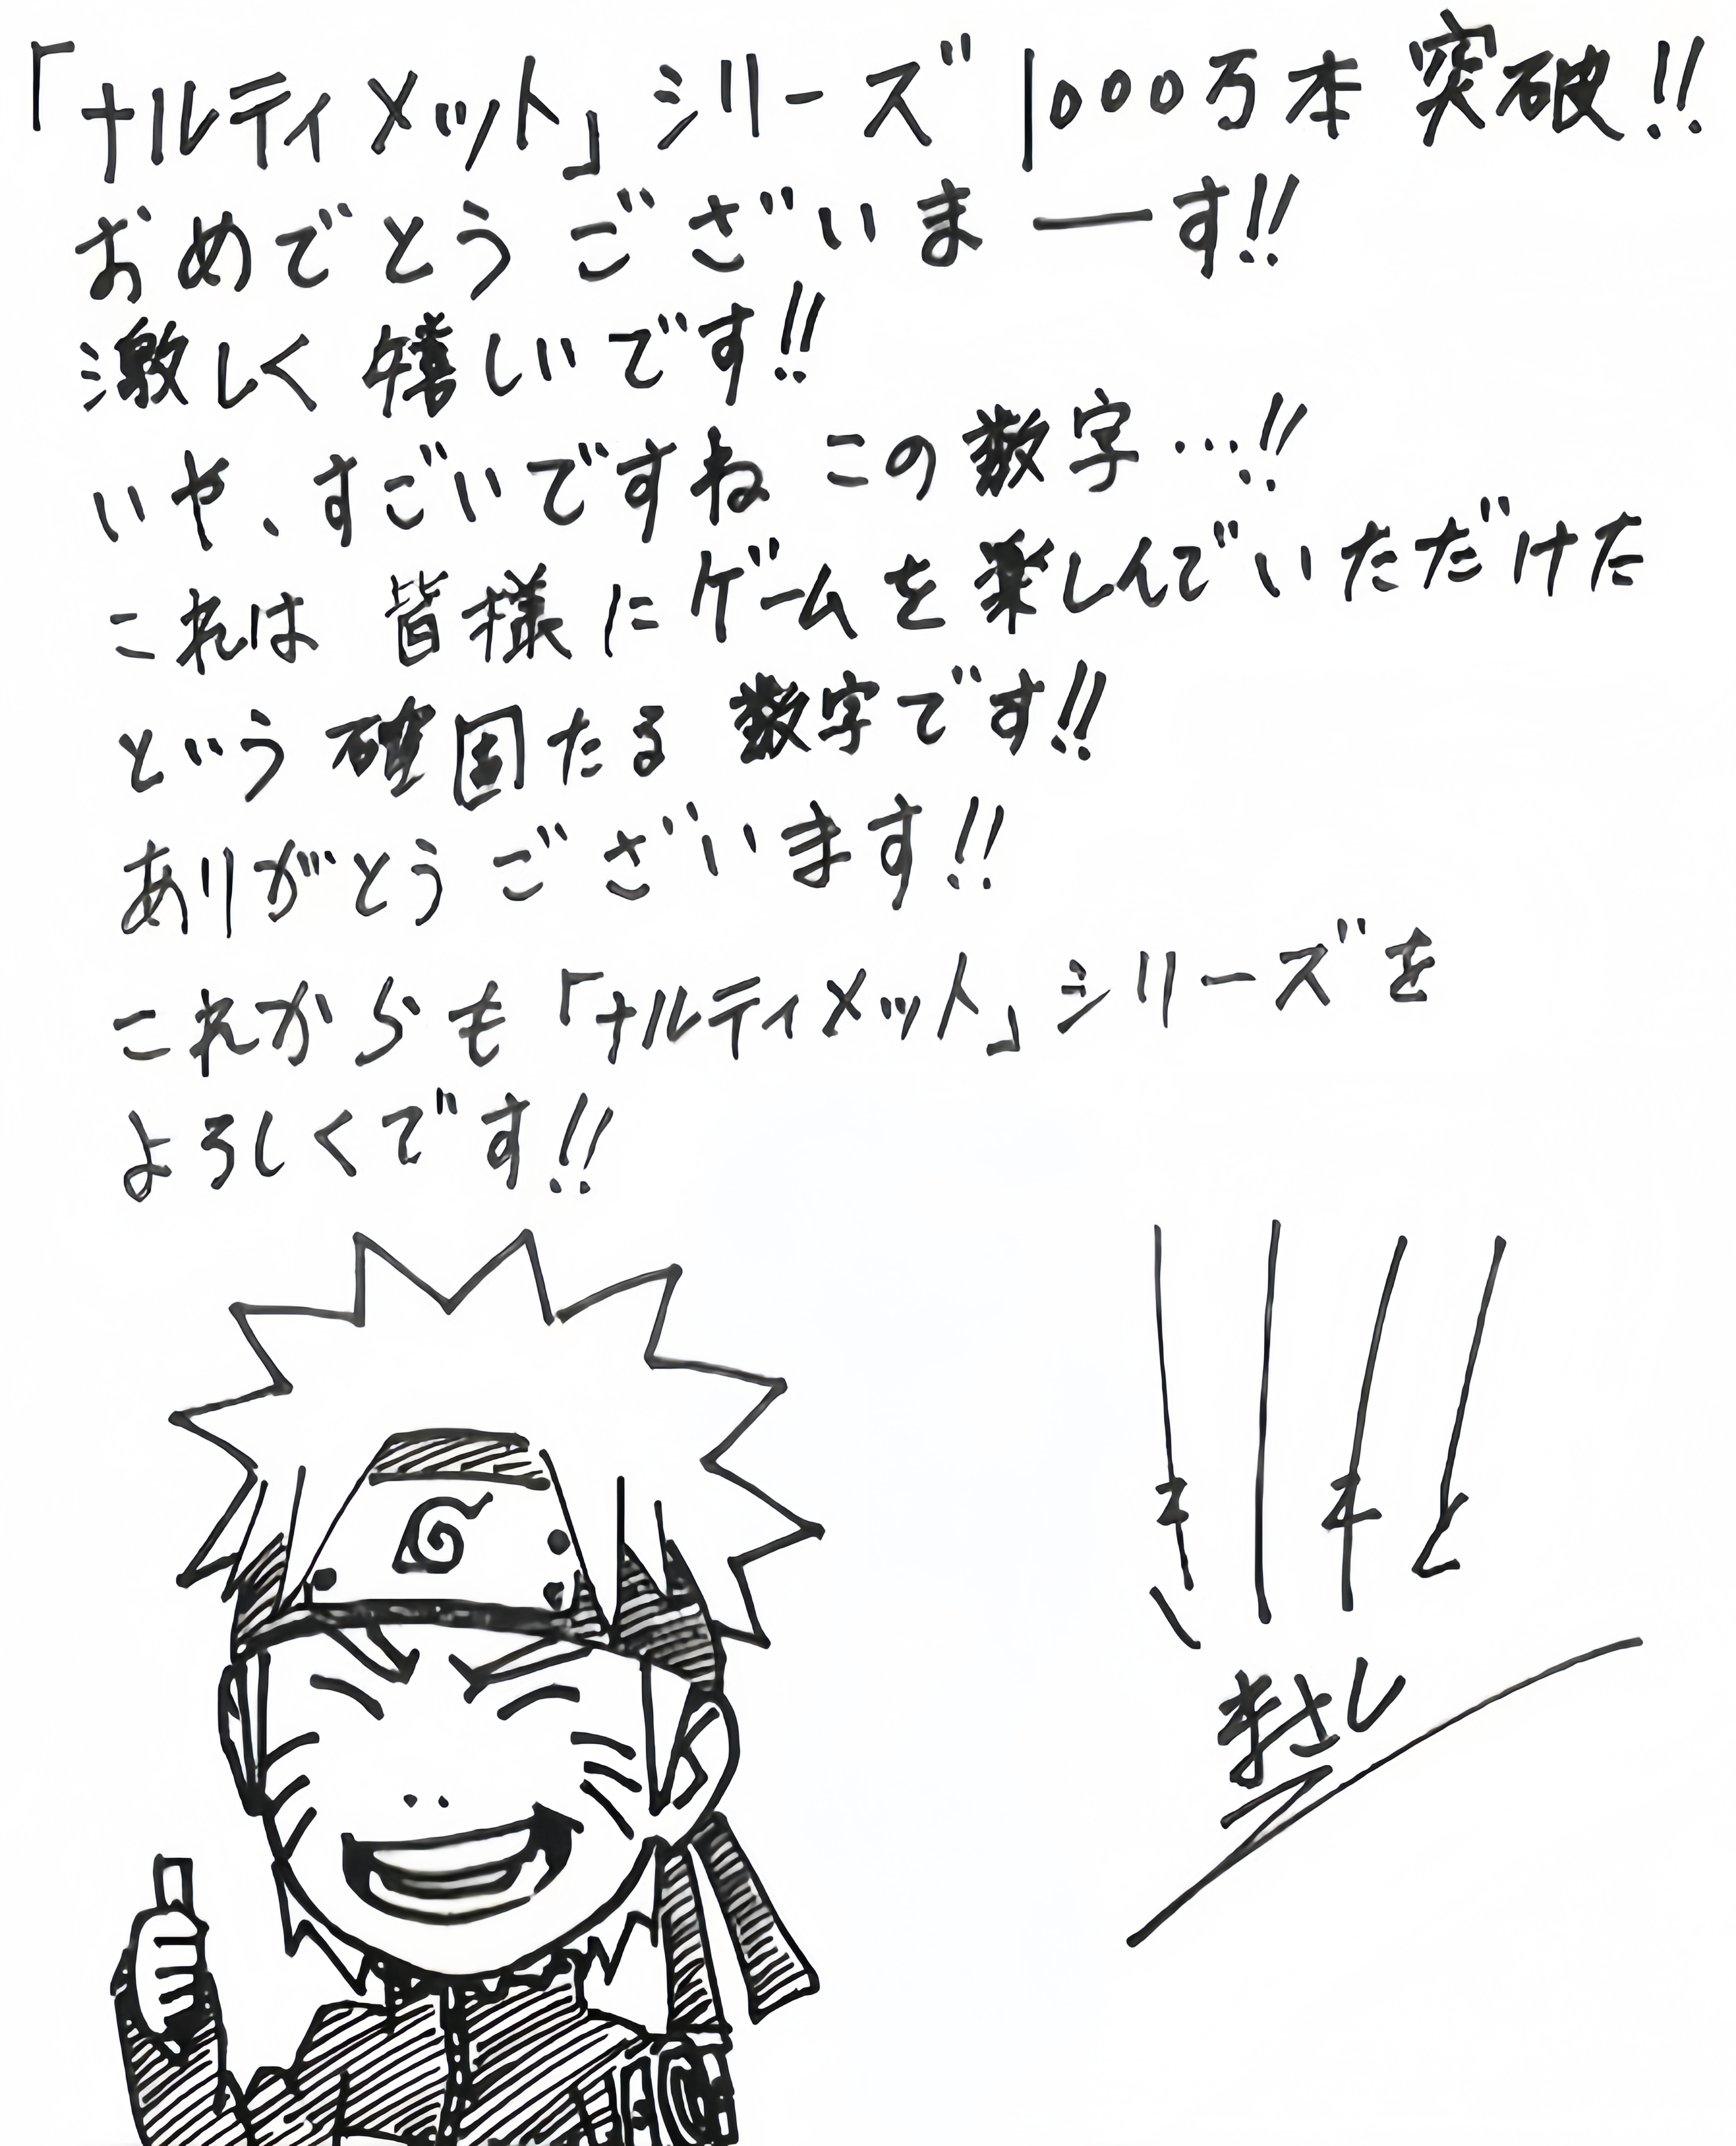 「ナルティメット」シリーズ1000万本突破!!
おめでとうございまーす!!
激しく嬉しいです!!
いや、すごいですねこの数字…!!
これは皆様にゲームを楽しんでいただけた
という確固たる数字です!!
ありがとうございます!!
これからも「ナルティメット」シリーズを
よろしくです!!